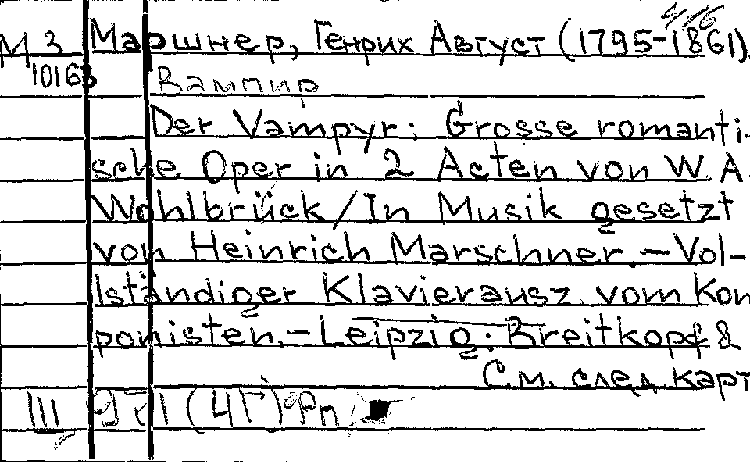 М 3 Маршнер, Генрих Август (1795-1861)
10163 Вампир
Der Vampyr: Grosse romanti-
sche Oper in 2 Acten von W. A.
Wohlbrück/In Musik gesetzt
von Heinrich Marschner.-Vol-
lständiger Klavierausz. vom Kom
ponisten.-Leipzig: Breitkopf &
См. след. карт
III